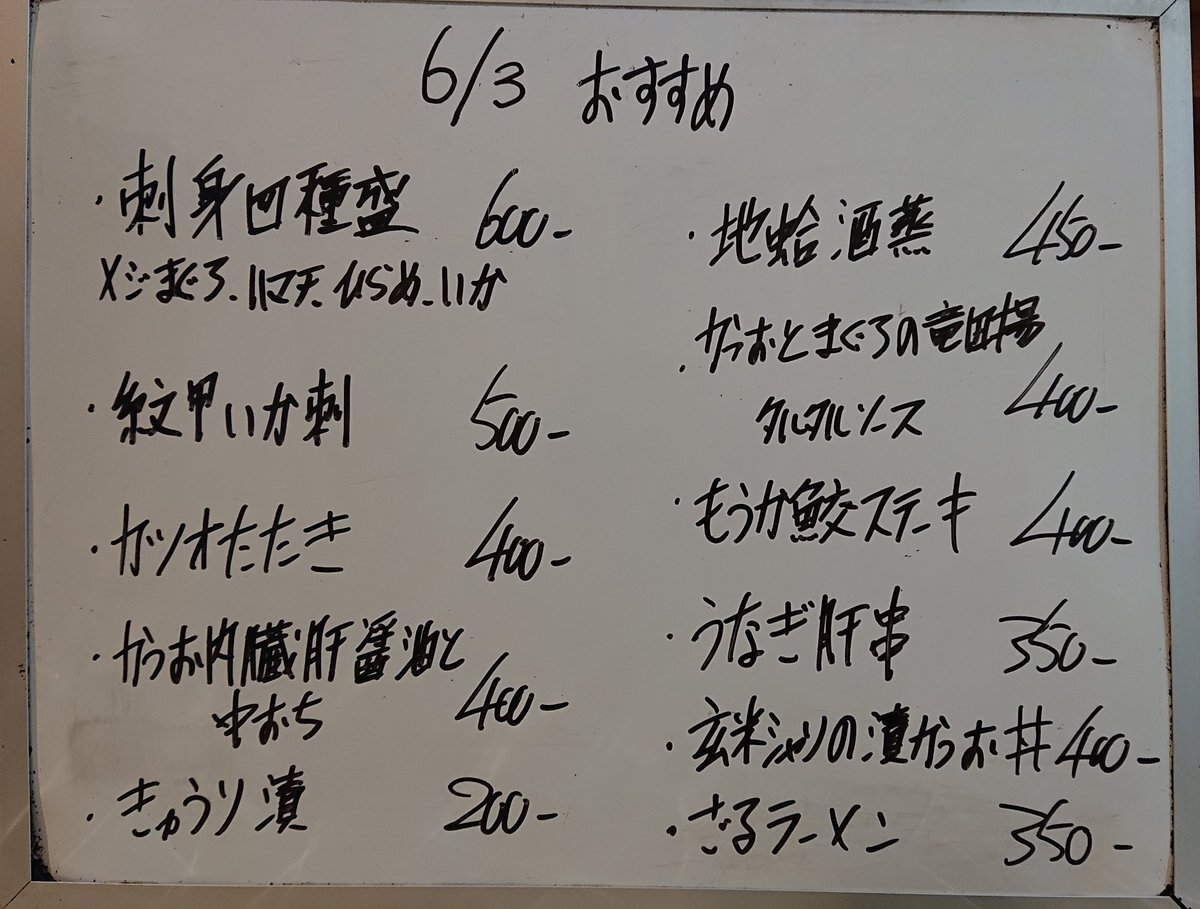 6/3 おすすめ
・刺身四種盛 600-
メジまぐろ、ひらめ、いか
・紋甲いか刺 500-
・カツオたたき 400-
・かつお内臓肝醤油と
中おち 400-
・きゅうり漬 200-
・地蛤酒蒸 450-
・かつおとまぐろの竜田揚
タルタルソース 400-
・もうか鮫ステーキ 400-
・うなぎ肝串 350-
・玄米シャリの漬かつお丼 400-
・ざるラーメン 350-